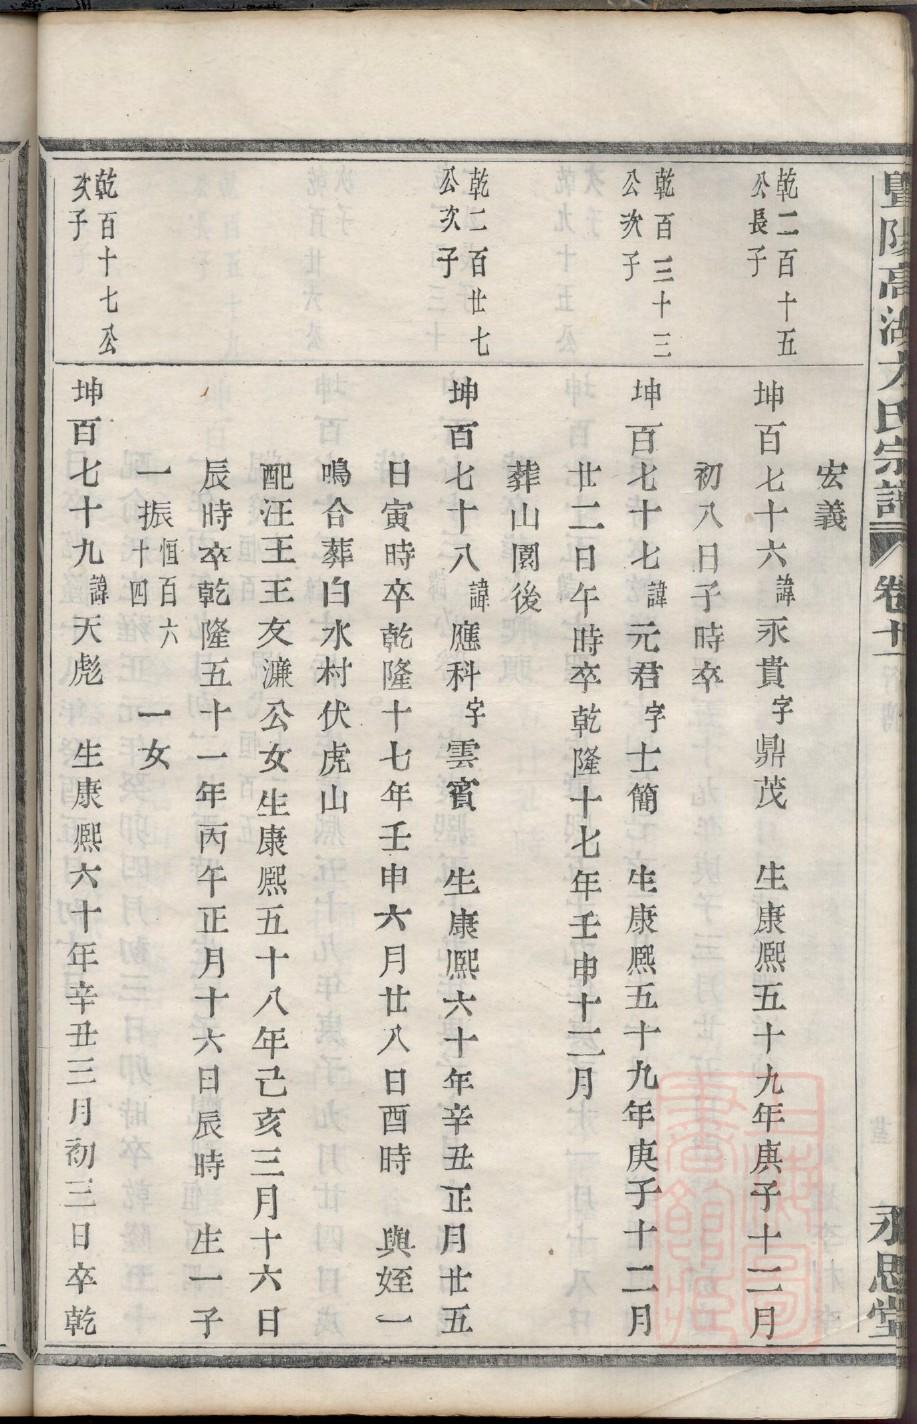 暨陽高湖方氏宗譜 卷十一 永思堂
宏義
乾二百十五
公長子
坤百七十六諱永貴字鼎茂 生康熙五十九年庚子十二月
初八日子時卒
乾百三十三
公次子
坤百七十七諱元君字士簡 生康熙五十九年庚子十二月
廿二日午時卒乾隆十七年壬申十二月
葬山園後
乾二百廿七
公次子
坤百七十八諱應科字雲賓 生康熙六十年辛丑正月廿五
日寅時卒乾隆十七年壬申六月廿八日酉時 與姪一
鳴合葬白水村伏虎山
配汪王王友濂公女生康熙五十八年己亥三月十六日
辰時卒乾隆五十一年丙午正月十六日辰時 生一子
一振恒百六十四 一女
乾百十七公
次子
坤百七十九諱天彪 生康熙六十年辛丑三月初三日卒乾